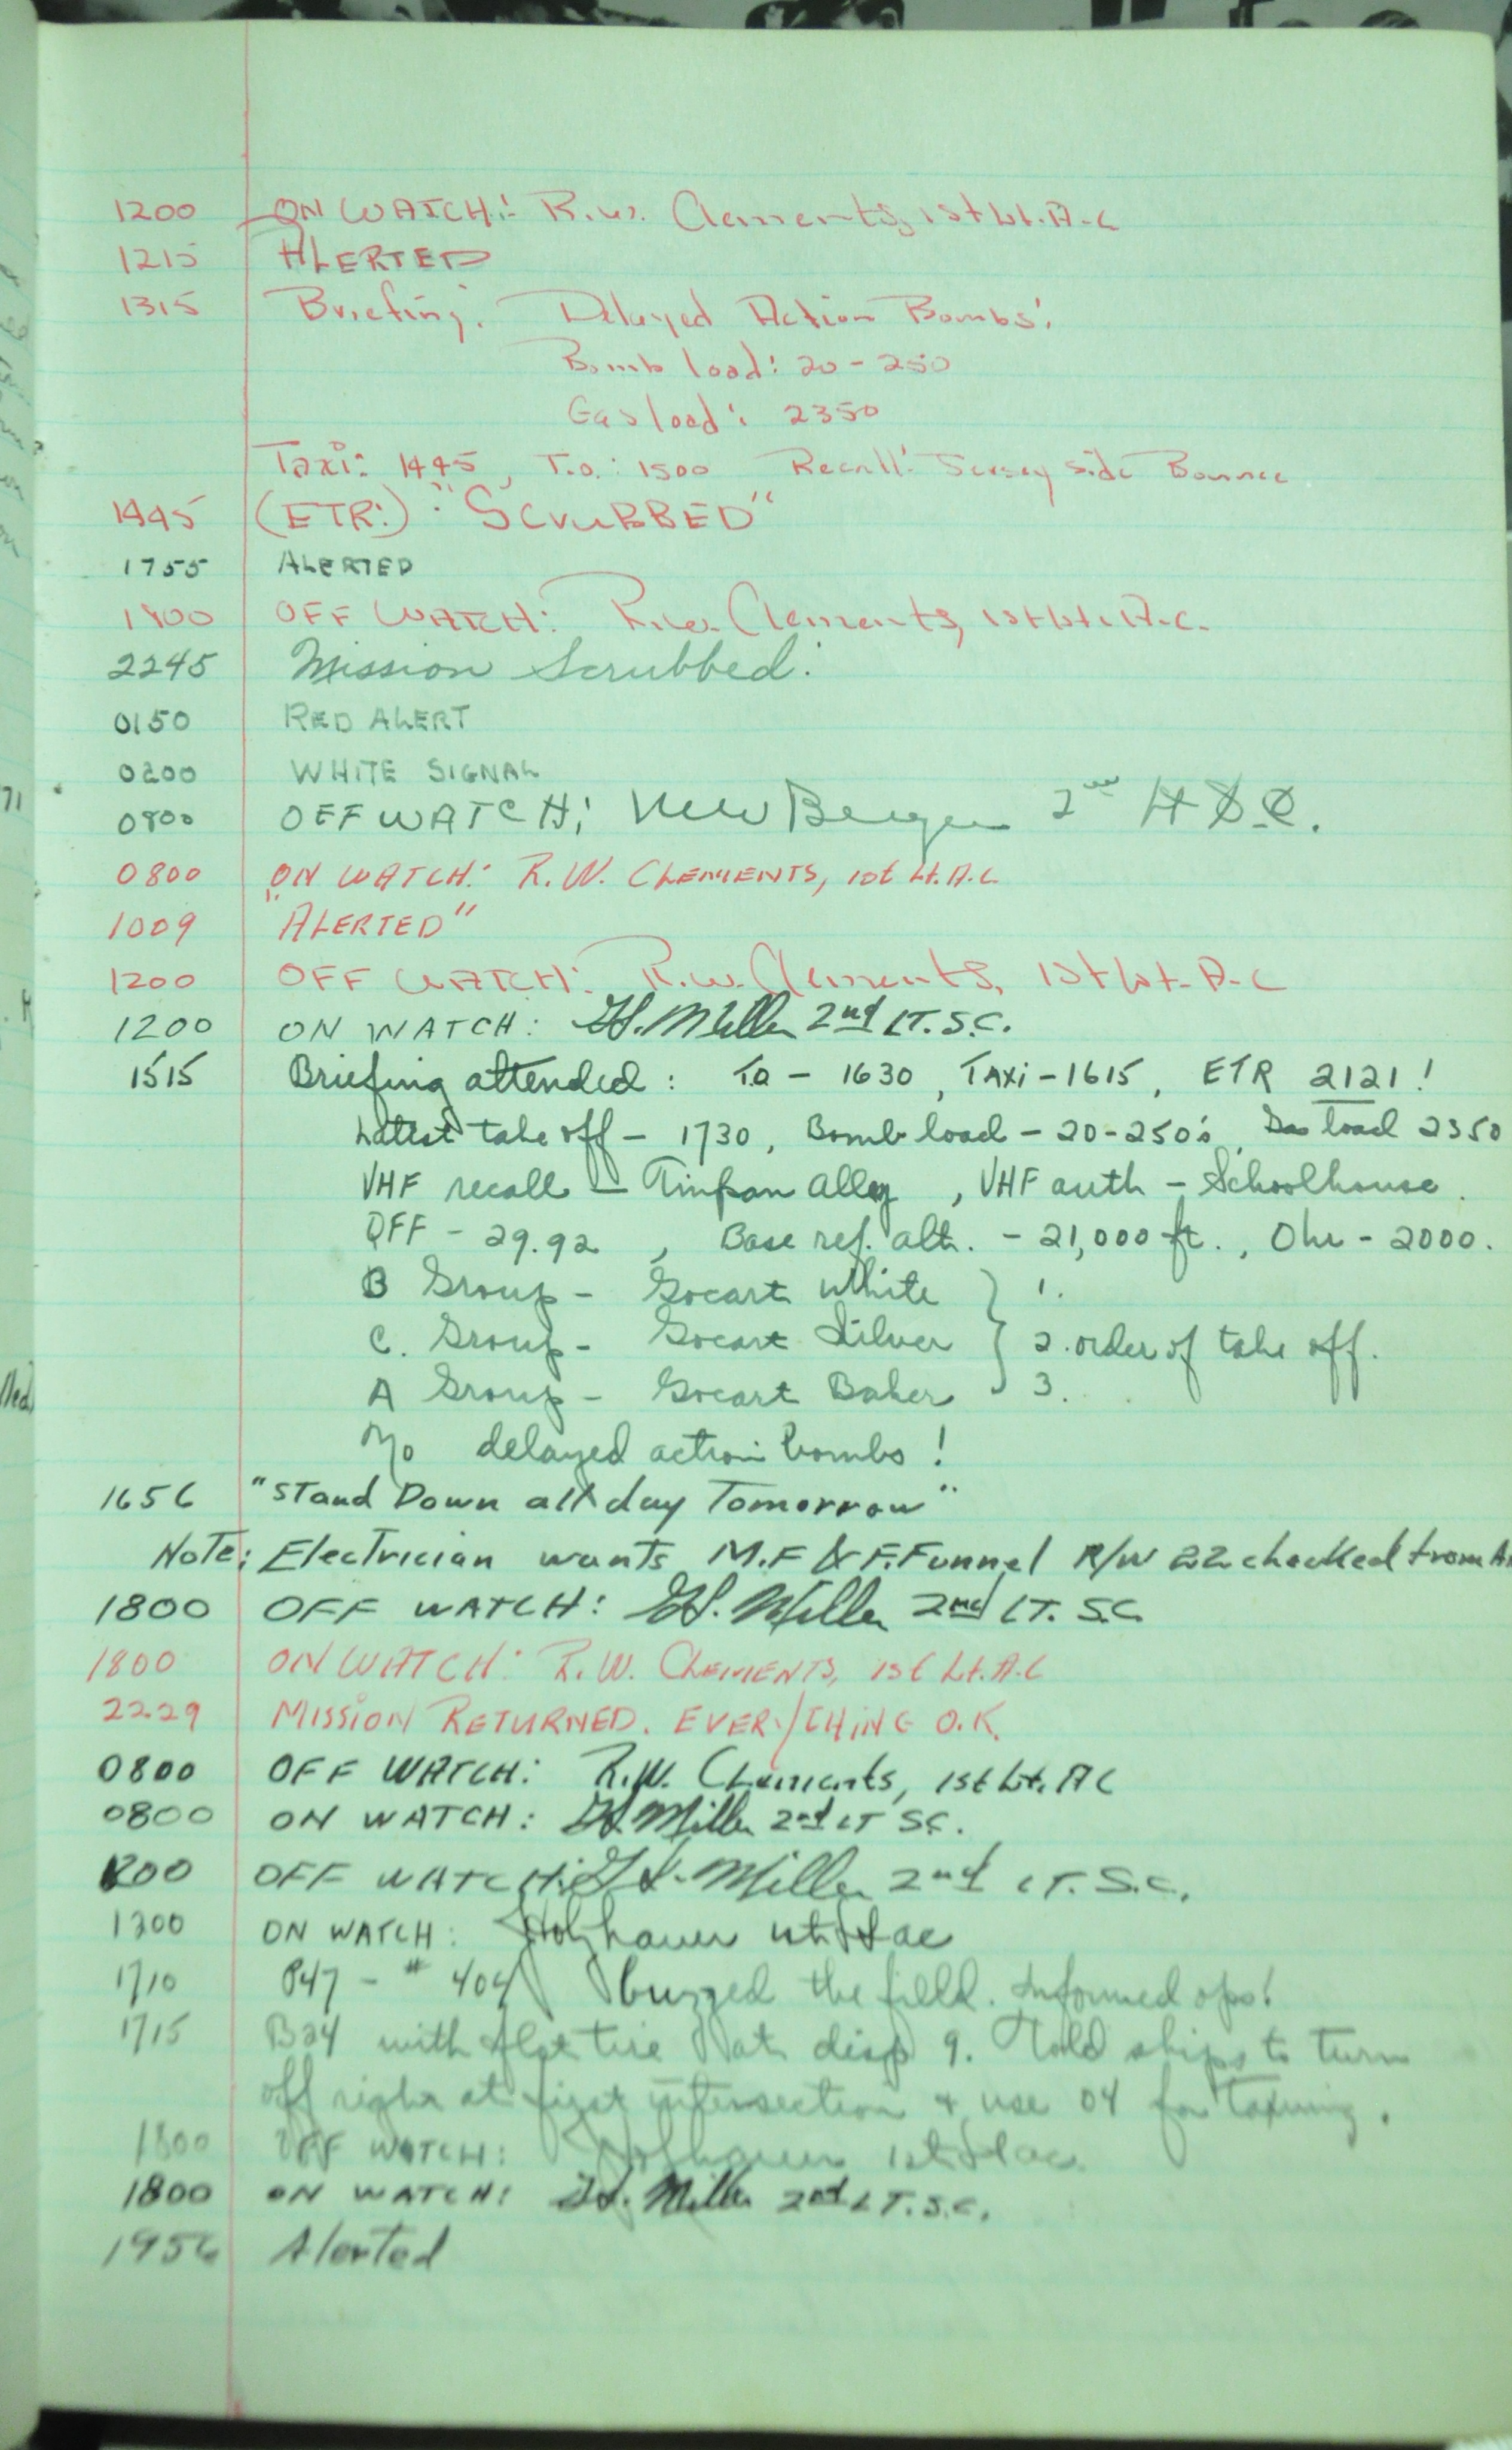 1200 ON WATCH: R.W. Clements, 1st Lt. A.C
1215 ALERTED
1315 Briefing: Delayed Action Bombs!
Bomb load: 20-250
Gas load: 2350
Taxi: 1445, T.O.: 1500 Recall: Jersey Side Bounce
1445 (ETR:) : "SCruBBED"
1755 ALERTED
1800 OFF WATCH: R.W. Clements, 1st Lt. A.C.
2245 Mission Scrubbed.
0150 RED ALERT
0200 WHITE SIGNAL
0800 OFF WATCH: 2nd
0800 ON WATCH: R.W. CLEMENTS, 1st Lt. A.C.
1009 "ALERTED"
1200 OFF WATCH: R.W. Clements, 1st Lt. A.C
1200 ON WATCH: Miller 2nd LT. S.C.
1515 Briefing attended: T.O - 1630, TAXi - 1615, ETR 2121!
Latest take off - 1730, Bomb load - 20-250's, Gas load 2350
VHF recall - Tinpan Alley, VHF auth - Schoolhouse.
QFF - 29.92, Base ref. alt. - 21,000 ft., 0 hr - 2000.
B Group - Gocart White } 1.
C. Group - Gocart Silver } 2. order of take off.
A Group - Gocart Baker } 3.
No delayed action bombs!
1656 "Stand Down all day Tomorrow"
Note: Electrician wants M.F & F. Funnel R/W 22 checked from
1800 OFF WATCH: Miller 2nd LT. S.C.
1800 ON WATCH: R.W. CLEMENTS, 1st Lt. A.C
2229 MISSION RETURNED. EVERYTHING O.K.
0800 OFF WATCH: R.W. Clements, 1st Lt. A C
0800 ON WATCH: Miller 2nd LT S.C.
1200 OFF WATCH: Miller 2nd LT. S.C.
1200 ON WATCH: Holzhauer 1st Lt ac
1710 P47 - # 404 buzzed the field. Informed ops!
1715 B24 with flat tire at disp 9. Told ships to turn
off right at first intersection & use 04 for taxiing.
1800 OFF WATCH: Holzhauer 1st Lt ac
1800 ON WATCH: Miller 2nd LT. S.C.
1956 Alerted